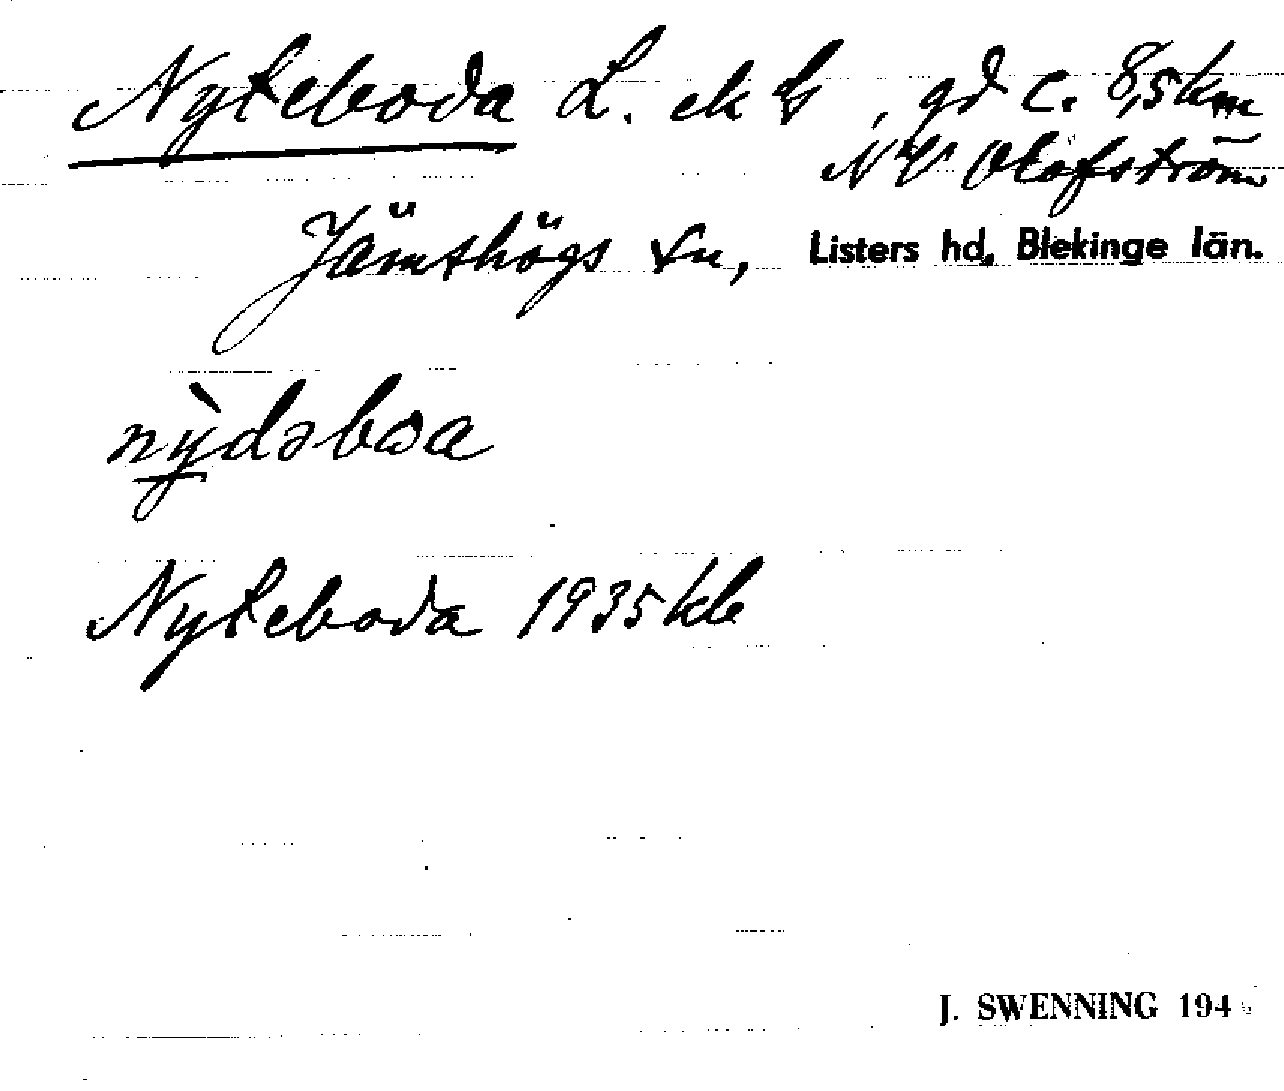 Nyteboda L. ek G, gd c. 8,5 km
NV Olofström
Jämshögs sn, Listers hd, Blekinge län.
nỳdəbωa
Nyteboda 1935 kle
J. SWENNING 194